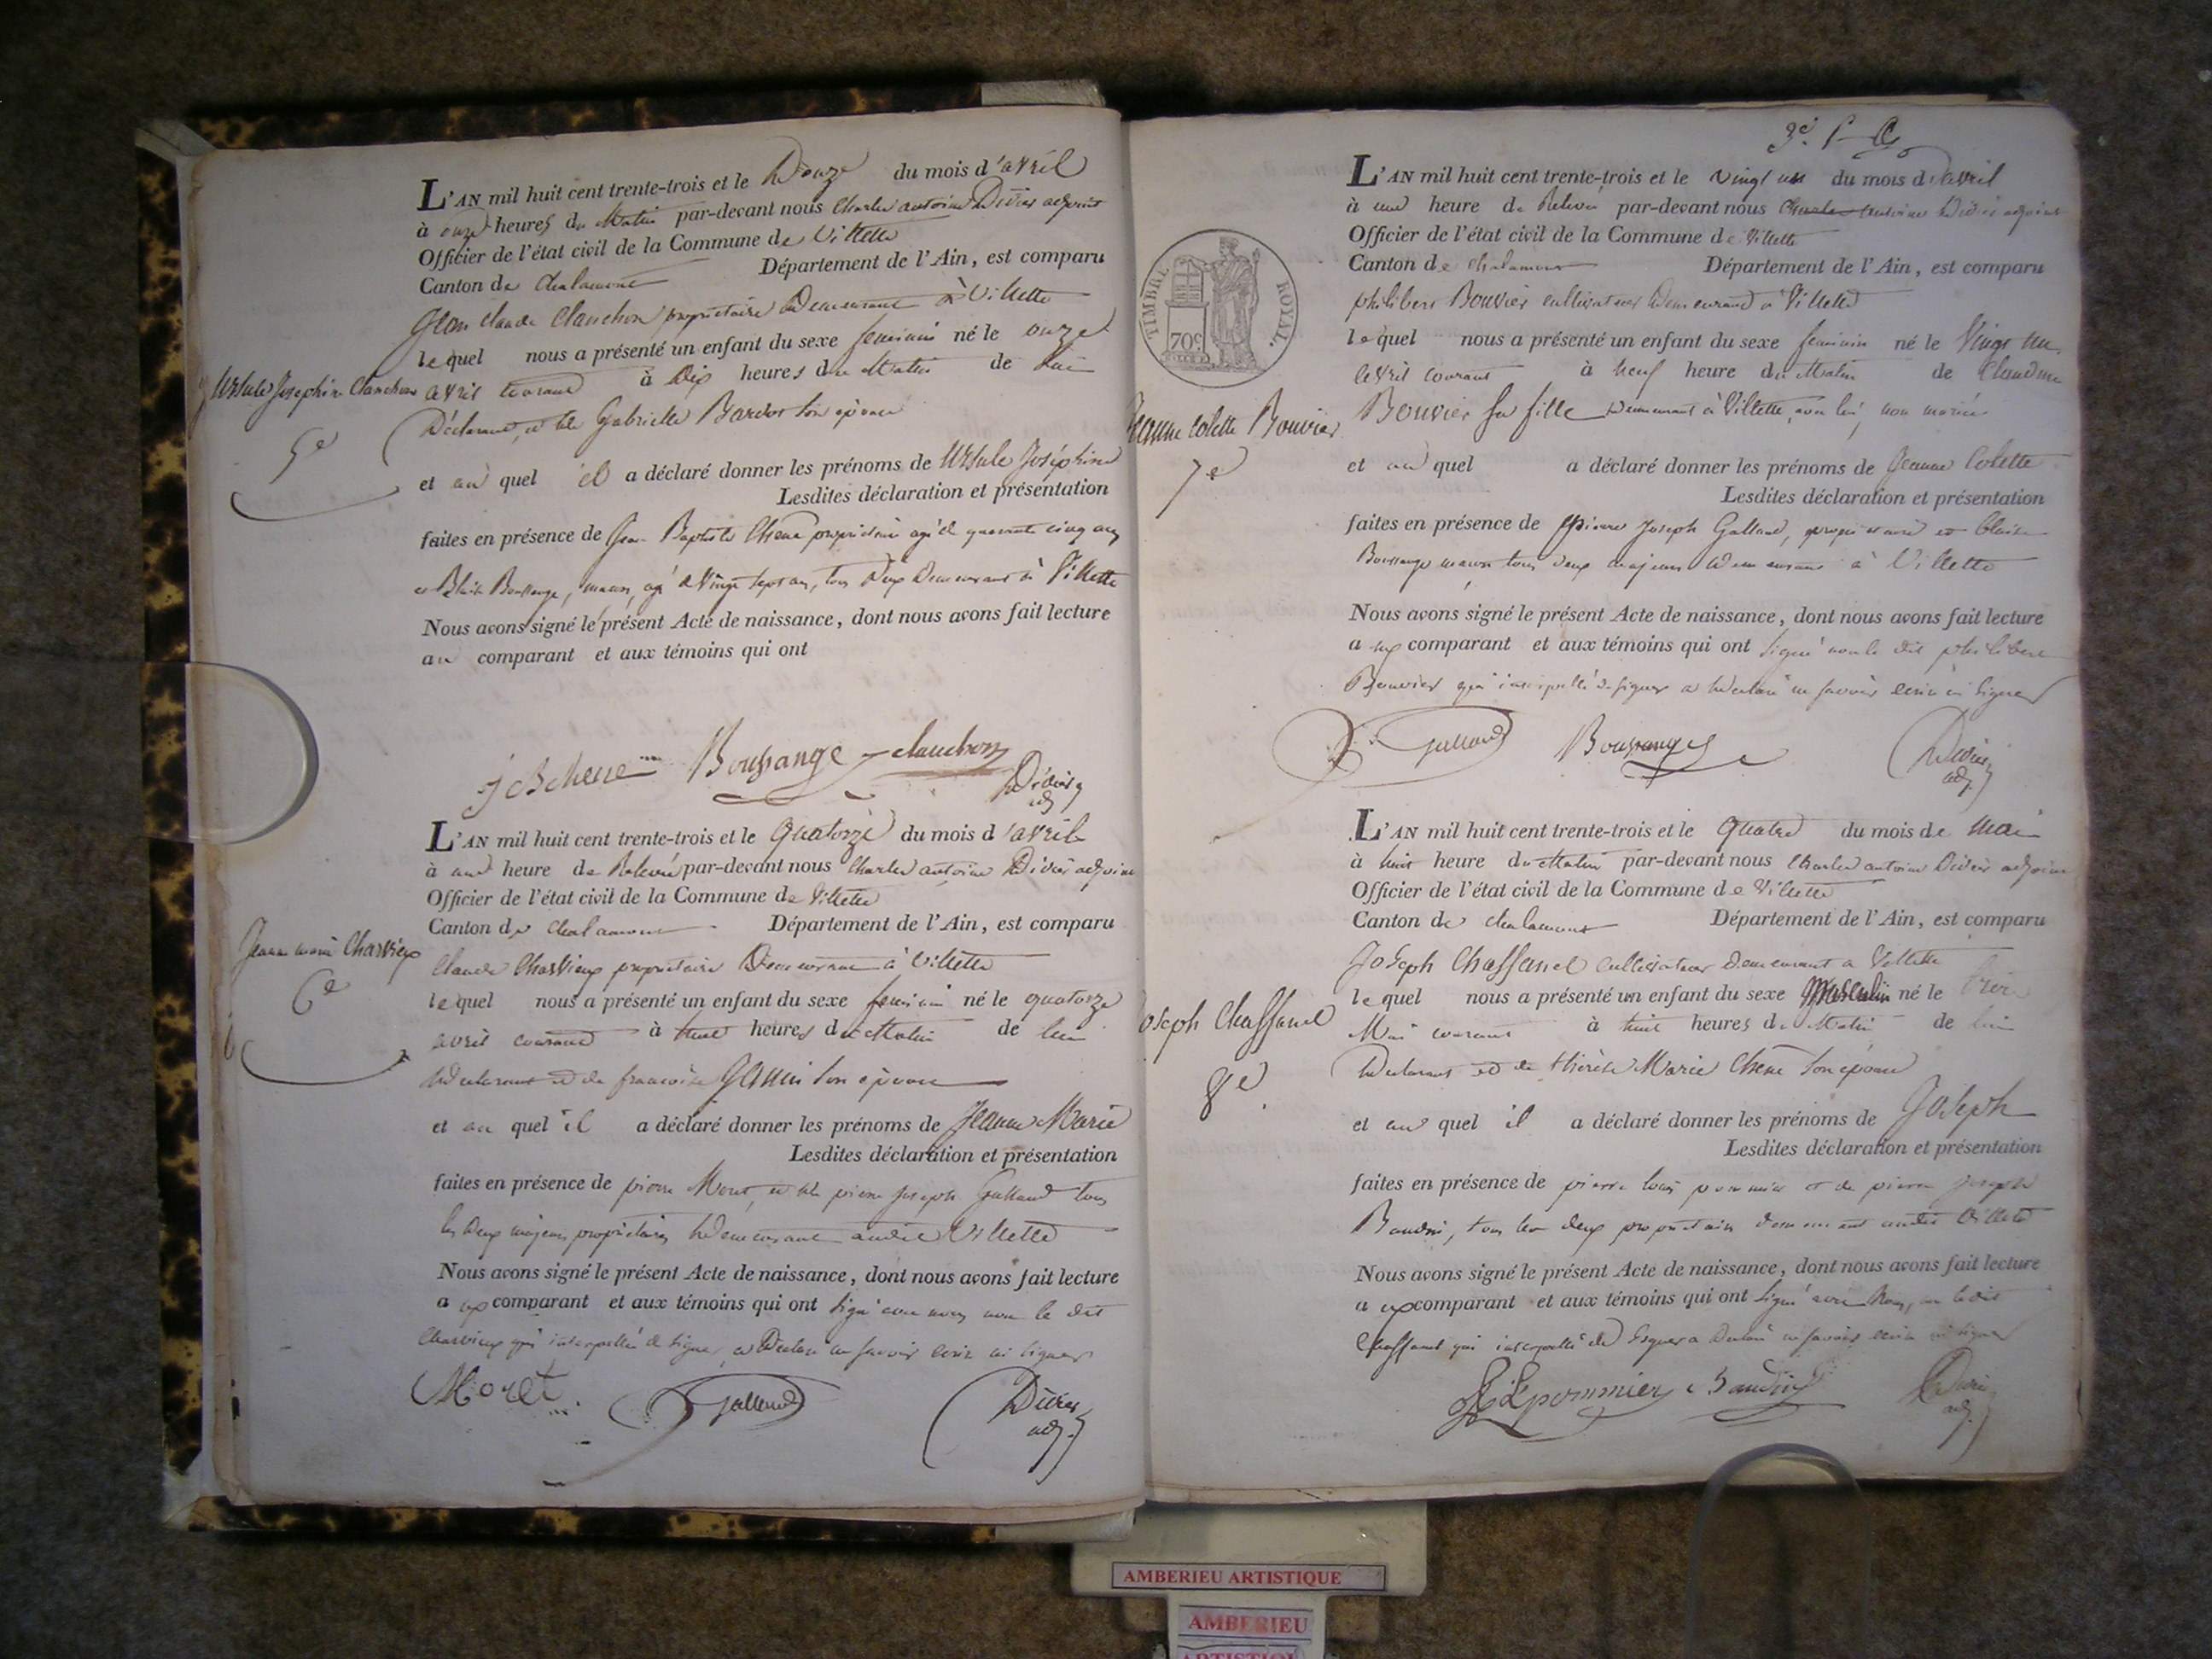 L'AN mil huit cent trente-trois et le Douze du mois d'avril
à onze heures du Matin par-devant nous Charles antoine Didier adjoint
Officier de l'état civil de la Commune de Villette
Canton de Chalamont Département de l'Ain, est comparu
Jean Claude Clanchon propriétaire Demeurant à Villette
lequel nous a présenté un enfant du sexe feminin né le onze
avril courant à Dix heures du Matin de lui
Déclarant, et de Gabrielle Bardot son épouse
et au quel il a déclaré donner les prénoms de Ursule Joséphine
Lesdites déclaration et présentation
faites en présence de Jean Baptiste Chene propriétaire agé de quarante cinq ans
et Blaise Boussange, maçon, agé de Vingt sept ans, tous deux Demeurant à Villette
Nous avons signé le présent Acte de naissance, dont nous avons fait lecture
au comparant et aux témoins qui ont
Ursule Josephine Clanchon
5e
JB Chene Boussange clanchon
Didier
adj
L'AN mil huit cent trente-trois et le Quatorze du mois d'avril
à une heure de Relevée par-devant nous Charles antoine Didier adjoint
Officier de l'état civil de la Commune de Villette
Canton de Chalamont Département de l'Ain, est comparu
Claude Charvieux propriétaire Demeurant à Villette
lequel nous a présenté un enfant du sexe feminin né le quatorze
avril courant à huit heures du Matin de lui
Déclarant et de francoise son épouse
et au quel il a déclaré donner les prénoms de Jeanne Marie
Lesdites déclaration et présentation
faites en présence de pierre Moret, et de pierre joseph Galland tous
les deux majeurs propriétaires Demeurant audit Villette
Nous avons signé le présent Acte de naissance, dont nous avons fait lecture
aux comparant et aux témoins qui ont signé avec nous non le dit
Charvieux qui interpellé de signer a Déclaré ne savoir ecrire ni signer
Jeanne marie Charvieux
6e
Moret Galland Didier
adj.
3e f
L'AN mil huit cent trente-trois et le vingt un du mois d'avril
à une heure de Relevée par-devant nous Charles Antoine Didier adjoint
Officier de l'état civil de la Commune de Villette
Canton de Chalamont Département de l'Ain, est comparu
philibert Bouvier cultivateur Demeurant à Villette
lequel nous a présenté un enfant du sexe feminin né le Vingt un
avril courant à neuf heure du Matin de Claudine
Bouvier sa fille Demeurant à Villette, avec lui, non mariée
et au quel a déclaré donner les prénoms de Jeanne Colette
Lesdites déclaration et présentation
faites en présence de pierre Joseph Galland, propriétaire et blaise
Boussange maçon tous deux majeurs Demeurant à Villette
Nous avons signé le présent Acte de naissance, dont nous avons fait lecture
aux comparant et aux témoins qui ont signé non le dit philibert
Bouvier qui interpellé de signer a Déclaré ne savoir ecrire ni signer
TIMBRE ROYAL.
70c
Jeanne Colette Bouvier
7e
Galland Boussange Didier
adj.
L'AN mil huit cent trente-trois et le Quatre du mois de Mai
à huit heure du Matin par-devant nous Charles antoine Didier adjoint
Officier de l'état civil de la Commune de Villette
Canton de Chalamont Département de l'Ain, est comparu
Joseph Chaffanel cultivateur Demeurant a Villette
lequel nous a présenté un enfant du sexe Masculin né le
Mai courant à huit heures du Matin de lui
Déclarant et de thérèse Marie Chene son épouse
et au quel il a déclaré donner les prénoms de Joseph
Lesdites déclaration et présentation
faites en présence de pierre louis pommier et de pierre joseph
Baudin, tous les deux propriétaires demeurant audit Villette
Nous avons signé le présent Acte de naissance, dont nous avons fait lecture
aux comparant et aux témoins qui ont signé avec Nous, non ledit
Chaffanel qui interpellé de signer a Déclaré ne savoir ecrire ni signer
Joseph Chaffanel
8e
pommier Baudin Didier
adj.
AMBERIEU ARTISTIQUE
AMBERIEU
ARTISTIQUE